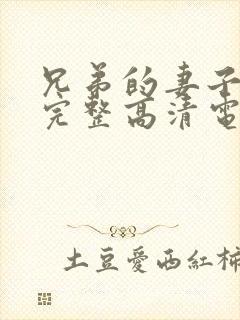 兄弟的妻子
完整高清電
土豆愛西紅柿